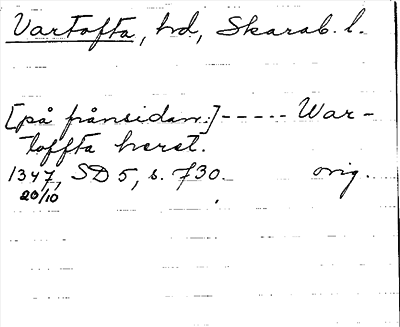 Vartofta, hd, Skarab. l.
[på frånsidan:]----- War-
toffta hærst.
1347, SD 5, s. 730. orig.
20/10